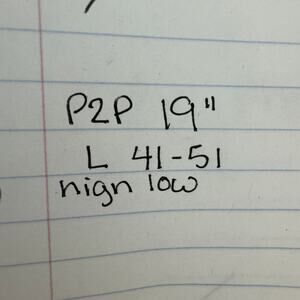 P2P 19"
L 41-51
high low